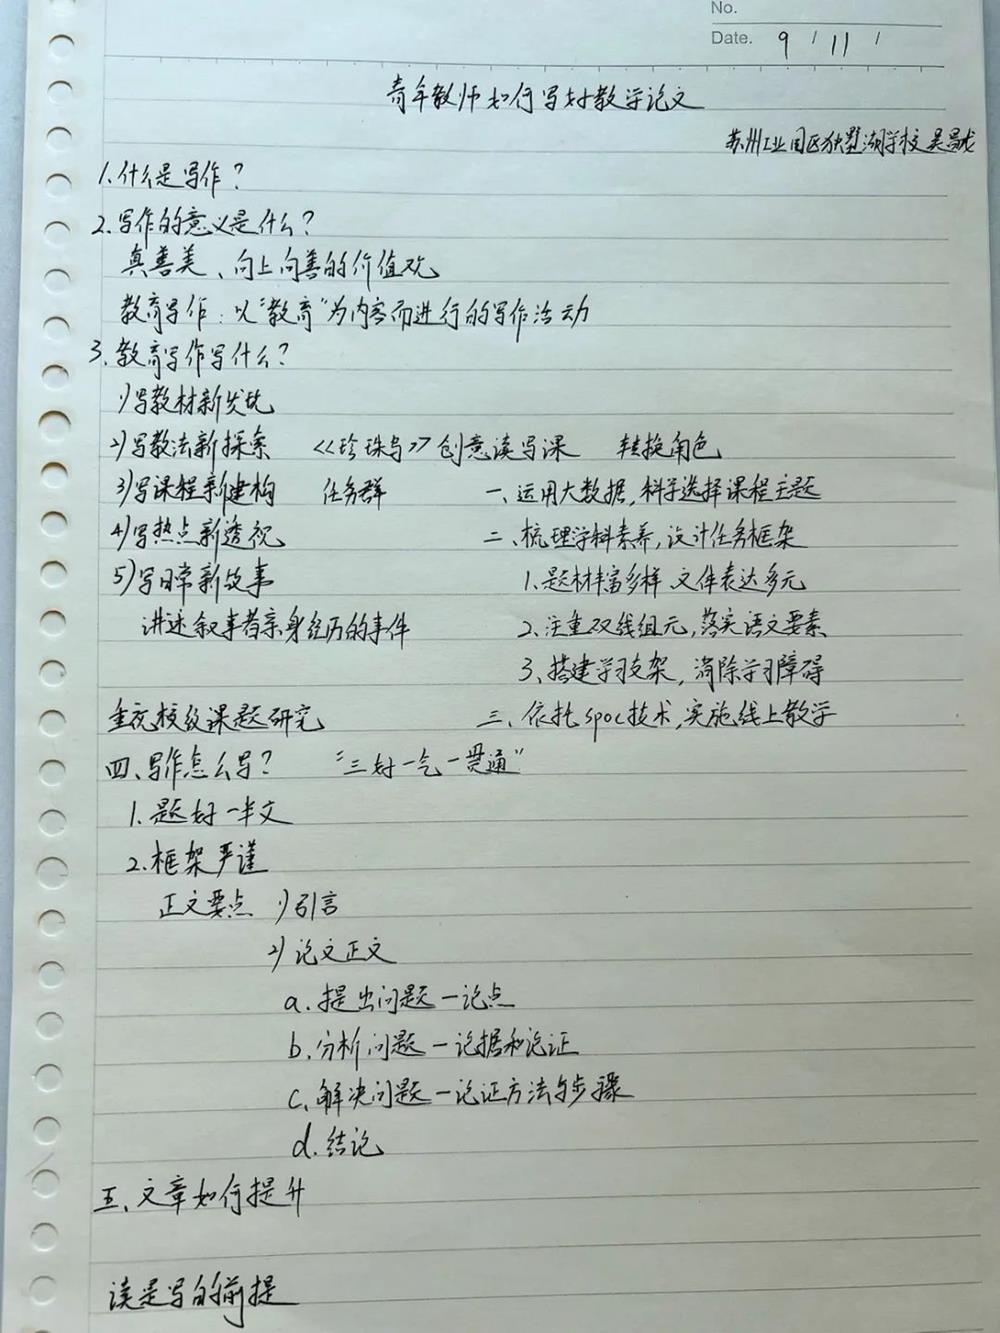 No.
Date. 9 / 11 /
青年教师如何写好教学论文
苏州工业园区独墅湖学校 吴
1.什么是写作?
2.写作的意义是什么?
真善美、向上向善的价值观
教育写作:以"教育"为内容而进行的写作活动
3.教育写作写什么?
1)写教材新发现
2)写教法新探索 《珍珠鸟》创意读写课 转换角色
3)写课程新建构 任务群 一、运用大数据,科学选择课程主题
4)写热点新透视 二、梳理学科素养,设计任务框架
5)写日常新故事 1.题材丰富多样 文件表达多元
讲述叙事者亲身经历的事件 2.注重双线组元,落实语文要素
3、搭建学习支架,消除学习障碍
重视校级课题研究 三、依托spoc技术,实施线上教学
四、写作怎么写? "三好一气一贯通"
1.题好一半文
2.框架严谨
正文要点 1)引言
2)论文正文
a.提出问题—论点
b.分析问题—论据和论证
c.解决问题—论证方法与步骤
d.结论
五、文章如何提升
读是写的前提